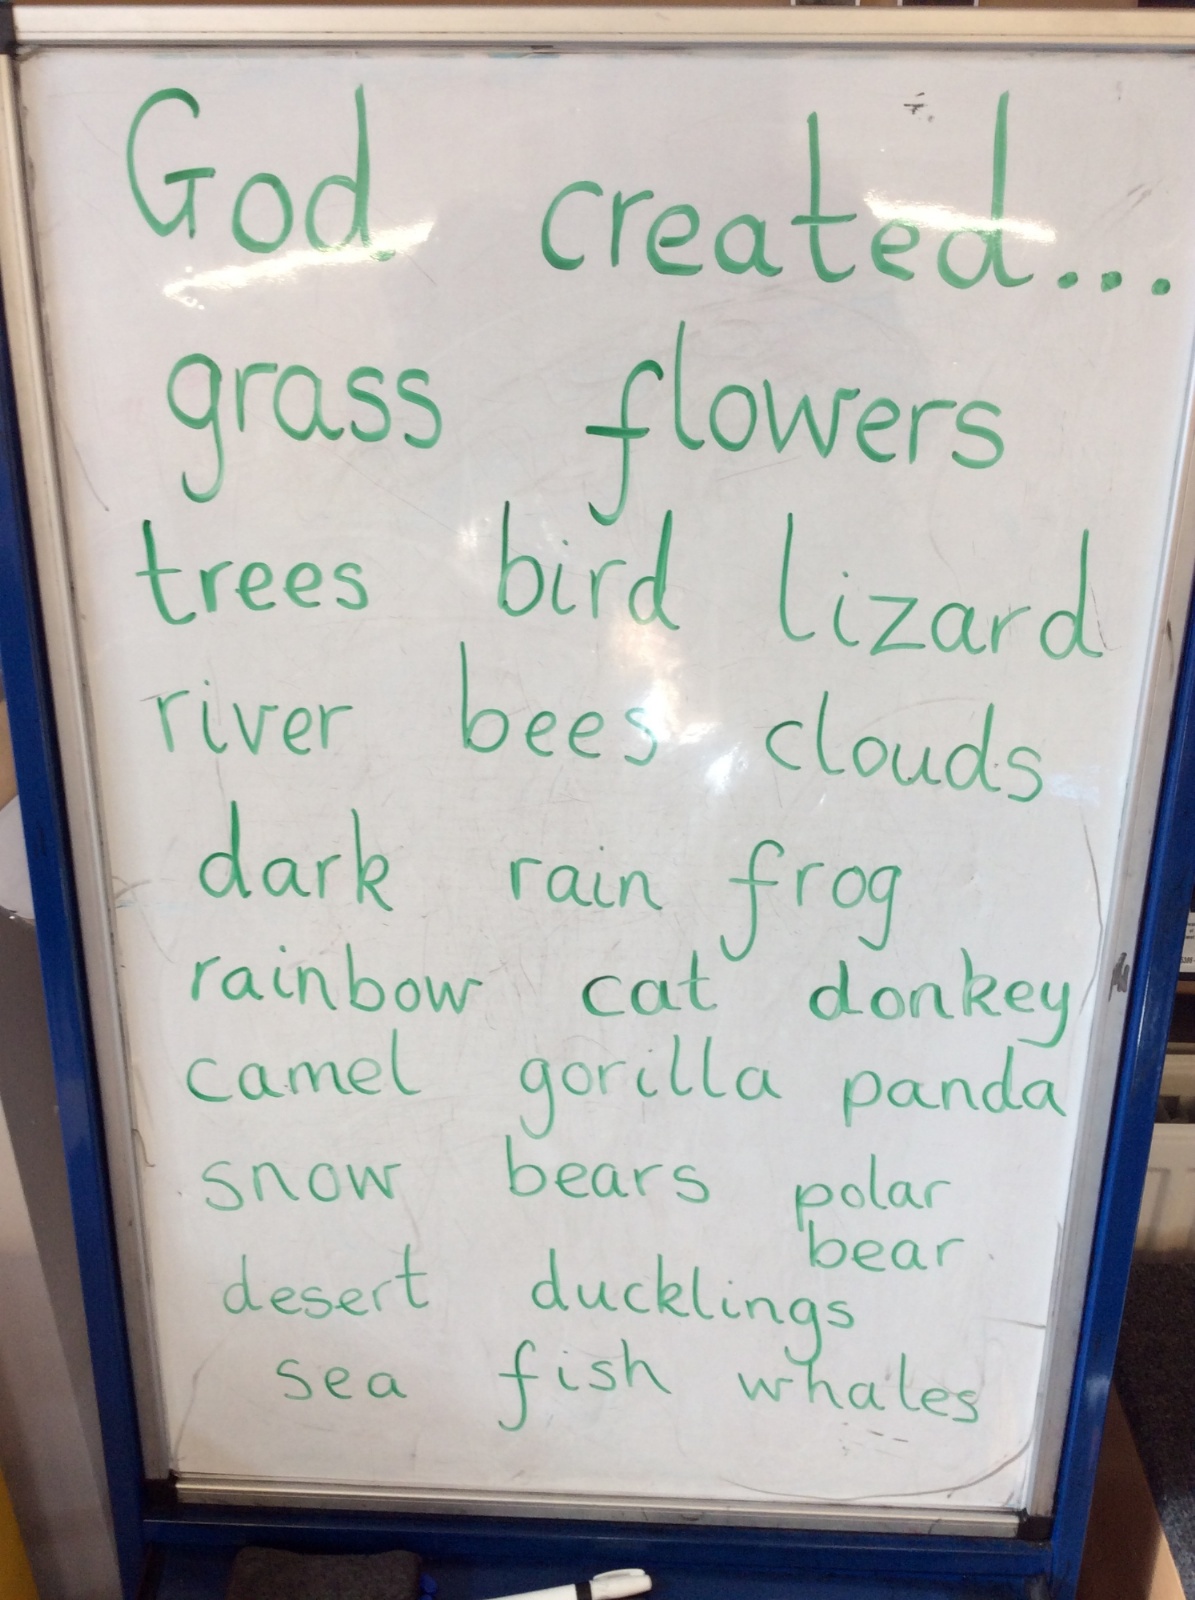 God created...
grass flowers
trees bird lizard
river bees clouds
dark rain frog
rainbow cat donkey
camel gorilla panda
snow bears polar
bear
desert ducklings
sea fish whales